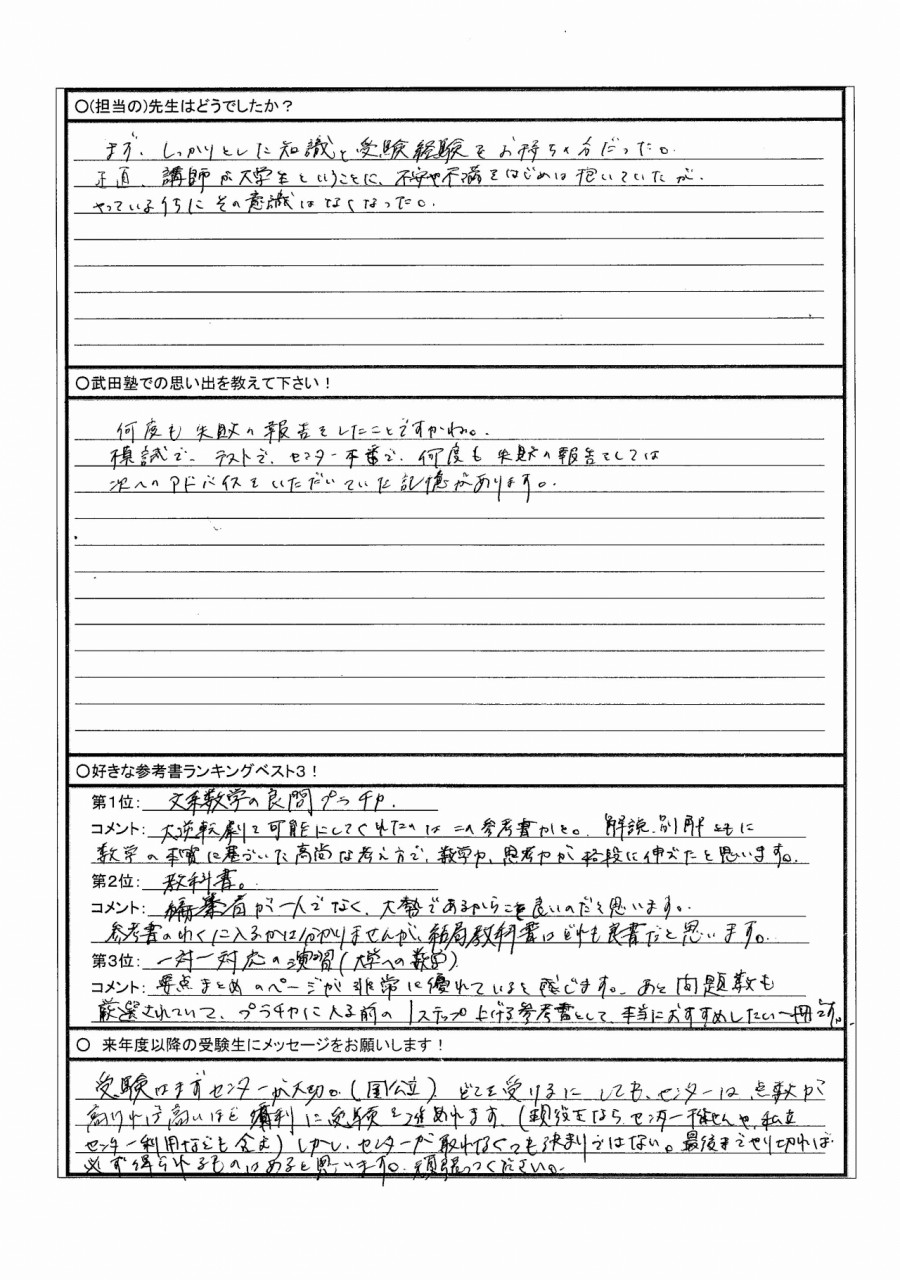 ○(担当の)先生はどうでしたか？
まず、しっかりとした知識と受験経験をお持ちの方だった。
正直、講師が大学生ということに、不安や不満をはじめは抱いていたが、
やっているうちにその意識はなくなった。
○武田塾での思い出を教えて下さい！
何度も失敗の報告をしたことですかね。
模試で、テストで、センター本番で、何度も失敗の報告をしては
次へのアドバイスをいただいていた記憶があります。
○好きな参考書ランキングベスト3！
第1位: 文系数学の良問プラチカ.
コメント: 大逆転劇を可能にしてくれたのはこの参考書かと。解説、別解ともに
数学の本質に基づいた高尚な考え方で、数学力、思考力が格段に伸びたと思います。
第2位: 教科書。
コメント: 編纂者が一人でなく、大勢であるからこそ良いのだと思います。
参考書のわくに入るかは分かりませんが、結局教科書はどれも良書だと思います。
第3位: 一対一対応の演習(大学への数学)
コメント: 要点まとめのページが非常に優れていると感じます。あと問題数も
厳選されていて、プラチカに入る前の1ステップ上げる参考書として、本当におすすめしたい一冊です。
○ 来年度以降の受験生にメッセージをお願いします！
受験はまずセンターが大切。(国公立) どこを受けるにしても、センターは点数が
高ければ高いほど有利に受験を進めれます。(現役生なら、センター、私立
センター利用なども含む) しかし、センターが取れなくっても決まりではない。最後までやり切れば
必ず得られるものはあると思います。頑張ってください。